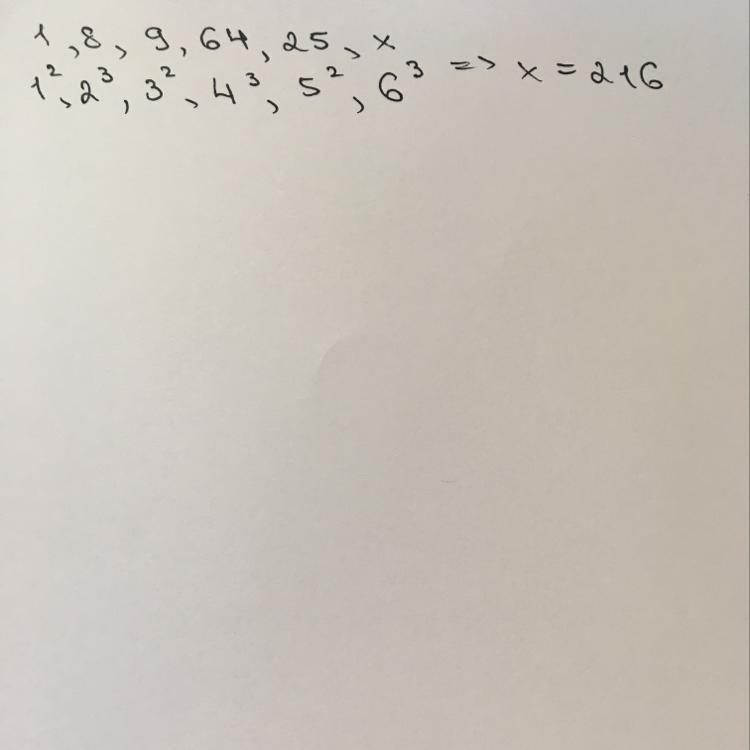 1, 8, 9, 64, 25, x
1², 2³, 3², 4³, 5², 6³ => x = 216